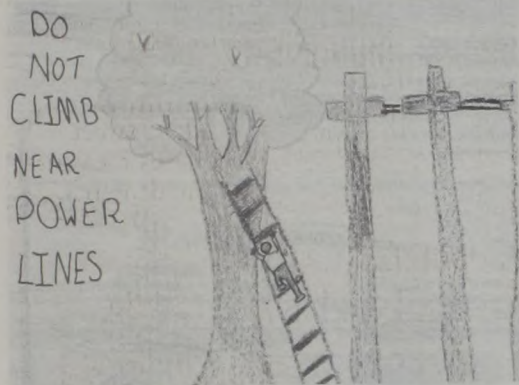 DO
NOT
CLIMB
NEAR
POWER
LINES